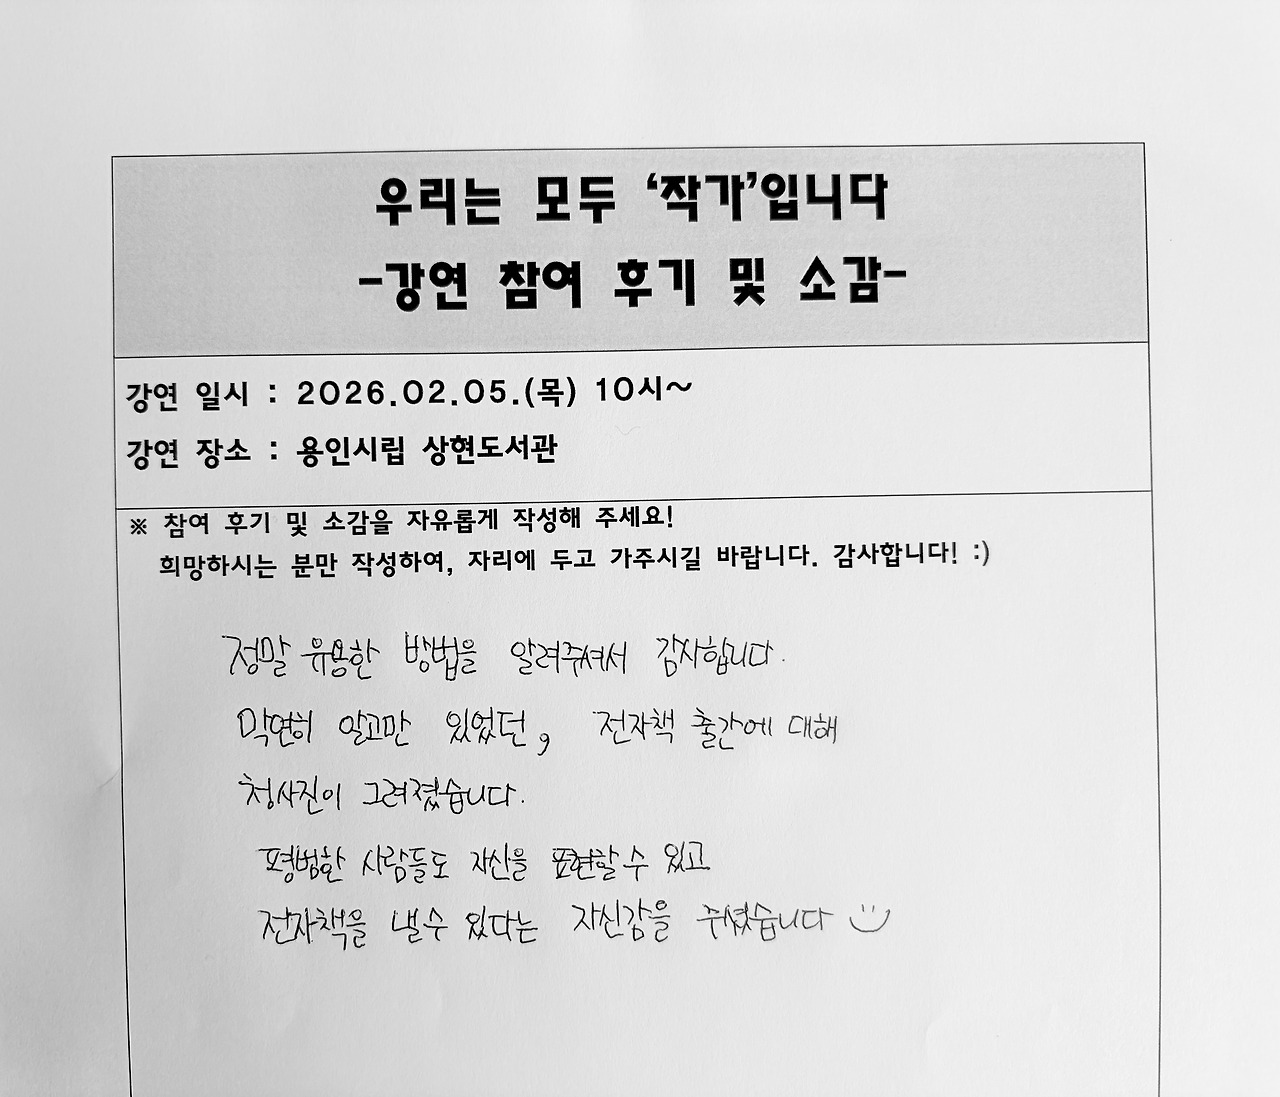 우리는 모두 ‘작가’입니다
-강연 참여 후기 및 소감-
강연 일시 : 2026.02.05.(목) 10시~
강연 장소 : 용인시립 상현도서관
※ 참여 후기 및 소감을 자유롭게 작성해 주세요!
희망하시는 분만 작성하여, 자리에 두고 가주시길 바랍니다. 감사합니다! :)
정말 유용한 방법을 알려주셔서 감사합니다.
막연히 알고만 있었던, 전자책 출간에 대해
청사진이 그려졌습니다.
평범한 사람들도 자신을 표현할 수 있고
전자책을 낼 수 있다는 자신감을 주셨습니다